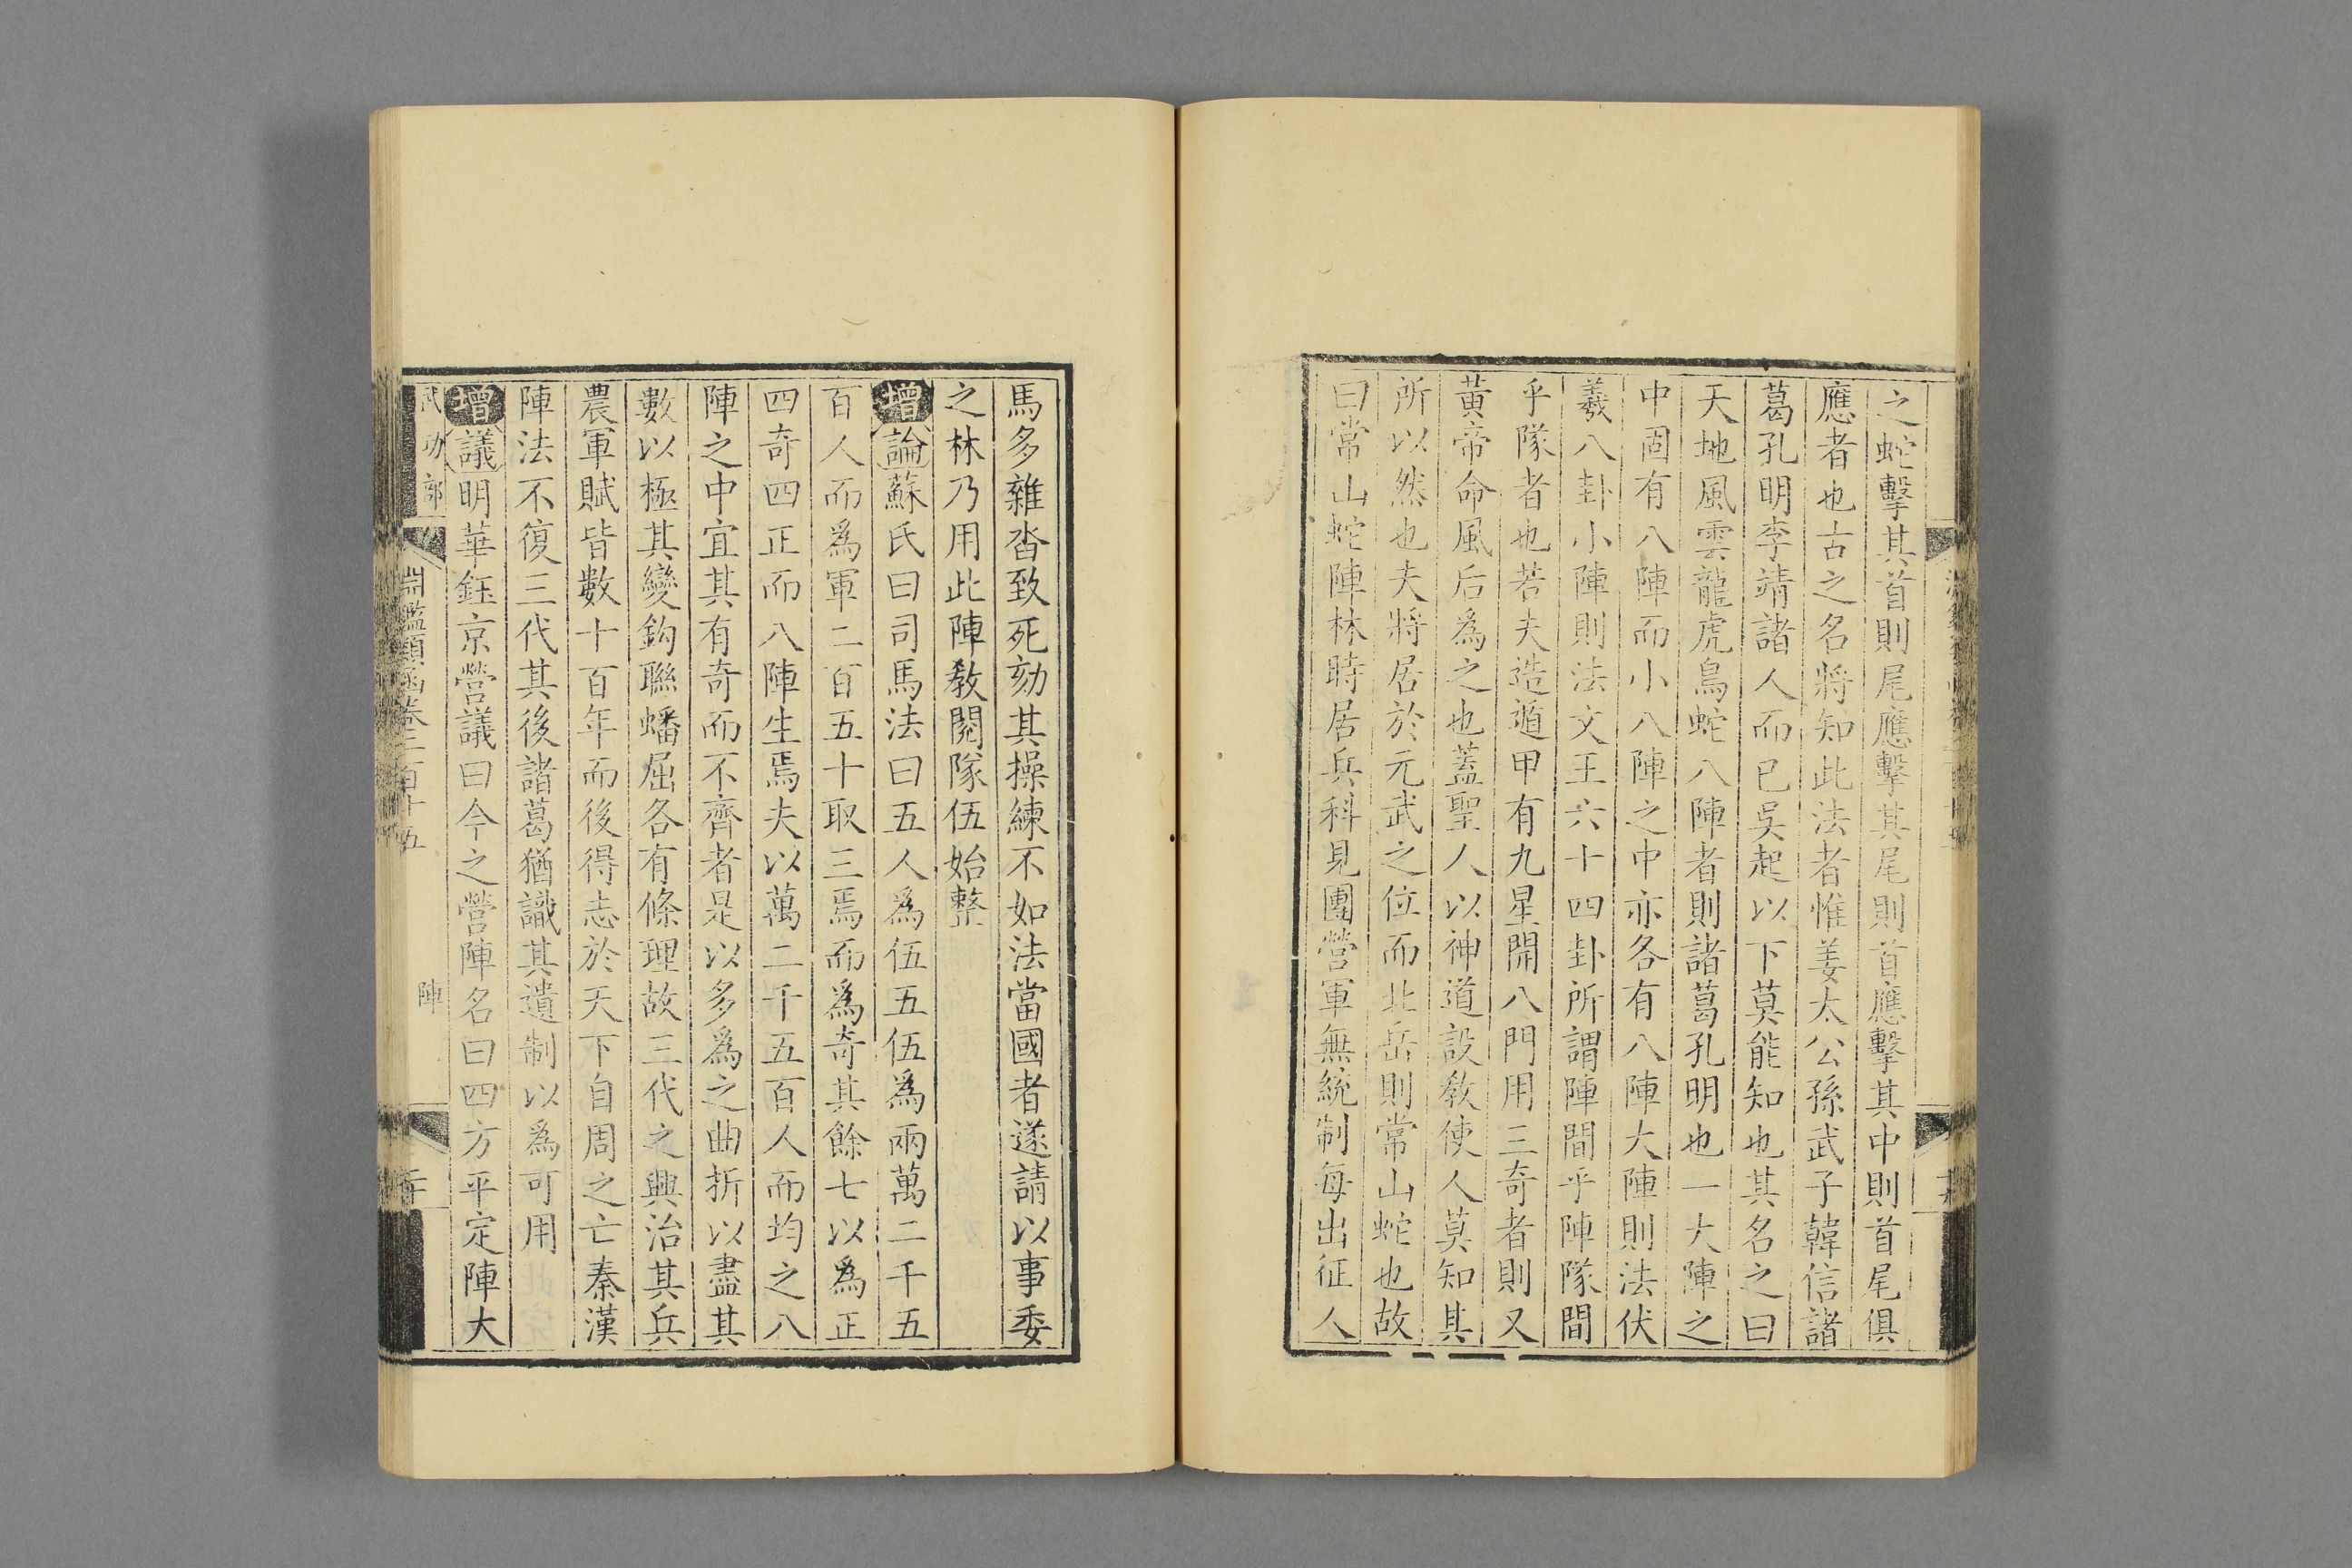 之蛇擊其首則尾應擊其尾則首應擊其中則首尾俱
應者也古之名將知此法者惟姜太公孫武子韓信諸
葛孔明李靖諸人而已吳起以下莫能知也其名之曰
天地風雲龍虎鳥蛇八陣者則諸葛孔明也一大陣之
中固有八陣而小八陣之中亦各有八陣大陣則法伏
羲八卦小陣則法文王六十四卦所謂陣間乎陣隊間
乎隊者也若夫造遁甲有九星開八門用三奇者則又
黃帝命風后為之也蓋聖人以神道設教使人莫知其
所以然也夫將居於元武之位而北岳則常山蛇也故
曰常山蛇陣林時居兵科見團營軍無統制每出征人
馬多雜沓致死劾其操練不如法當國者遂請以事委
之林乃用此陣教閱隊伍始整
增論蘇氏曰司馬法曰五人爲伍五伍爲兩萬二千五
百人而爲軍二百五十取三焉而爲奇其餘七以爲正
四奇四正而八陣生焉夫以萬二千五百人而均之八
陣之中宜其有奇而不齊者是以多爲之曲折以盡其
數以極其變鈎聯蟠屈各有條理故三代之興治其兵
農軍賦皆數十百年而後得志於天下自周之亡秦漢
陣法不復三代其後諸葛猶識其遺制以爲可用
增議明華鈺京營議曰今之營陣名曰四方平定陣大
武功部
淵鑑類函卷二百十五
陣